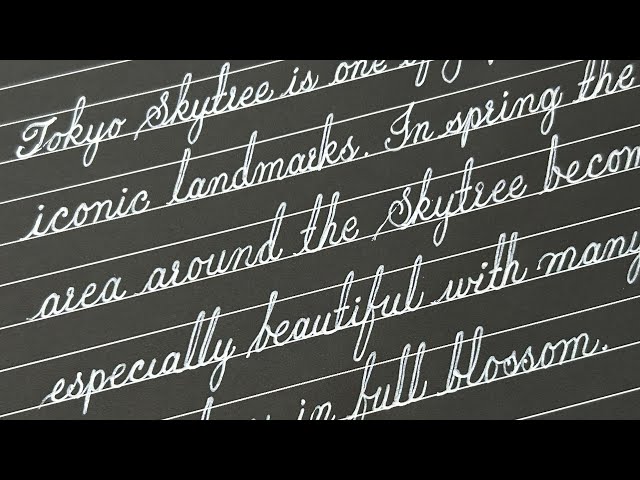 Tokyo Skytree is one of
iconic landmarks. In spring the
area around the Skytree
especially beautiful with many
in full blossom.